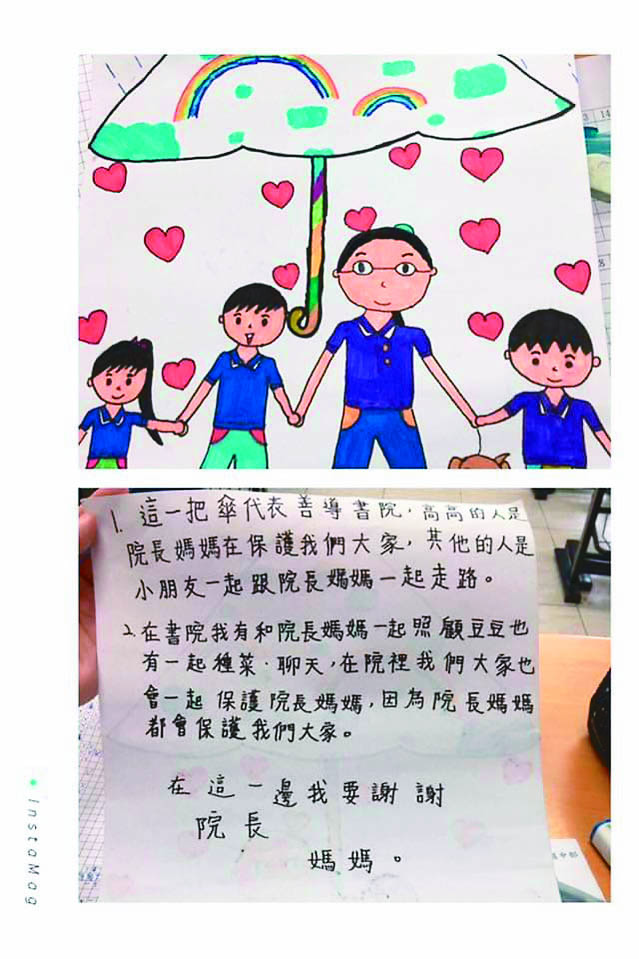 1. 這一把傘代表善導書院，高高的人是
院長媽媽在保護我們大家，其他的人是
小朋友一起跟院長媽媽一起走路。
2. 在書院我有和院長媽媽一起照顧豆豆也
有一起種菜．聊天，在院裡我們大家也
會一起保護院長媽媽，因為院長媽媽
都會保護我們大家。
在這一邊我要謝謝
院長
媽媽。
InstaMag